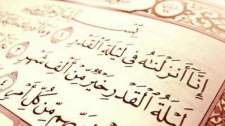 بِسْمِ
إِنَّا أَنزَلْنَٰهُ فِى لَيْلَةِ ٱلْقَدْرِ
لَيْلَةُ ٱلْقَدْرِ خَيْرٌ مِّنْ أَلْفِ شَهْرٍ
رَبِّهِم مِّن كُلِّ أَمْرٍ